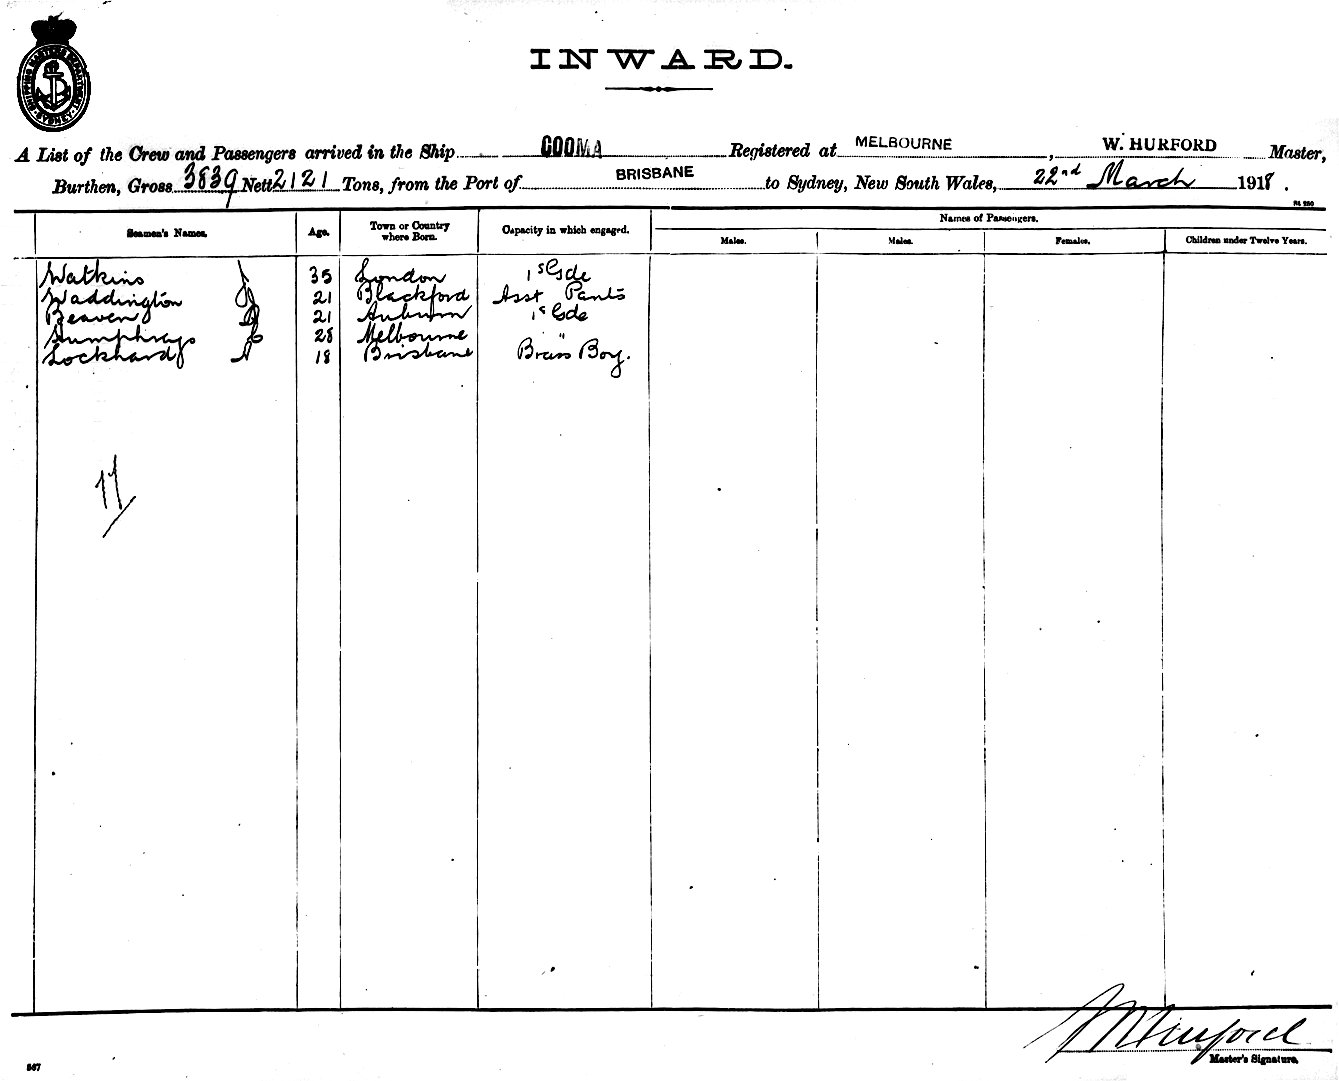 SHIPPING MASTER'S DEPARTMENT SYDNEY
INWARD.
A List of the Crew and Passengers arrived in the Ship COOMA Registered at MELBOURNE, W. HURFORD Master,
Burthen, Gross 3839 Nett 2121 Tons, from the Port of BRISBANE to Sydney, New South Wales, 22nd March 1918.
Seamen's Names. Age. Town or Country where Born. Capacity in which engaged. Names of Passengers.
Males. Males. Females. Children under Twelve Years.
Watkins J 35 London 1st Gde
Waddington 21 Blackford Asst Pants
Beaven 21 Auburn 1st Gde
Humphrays 28 Melbourne "
Lockhard A 18 Brisbane Brass Boy.
W Hurford
Master's Signature.
567